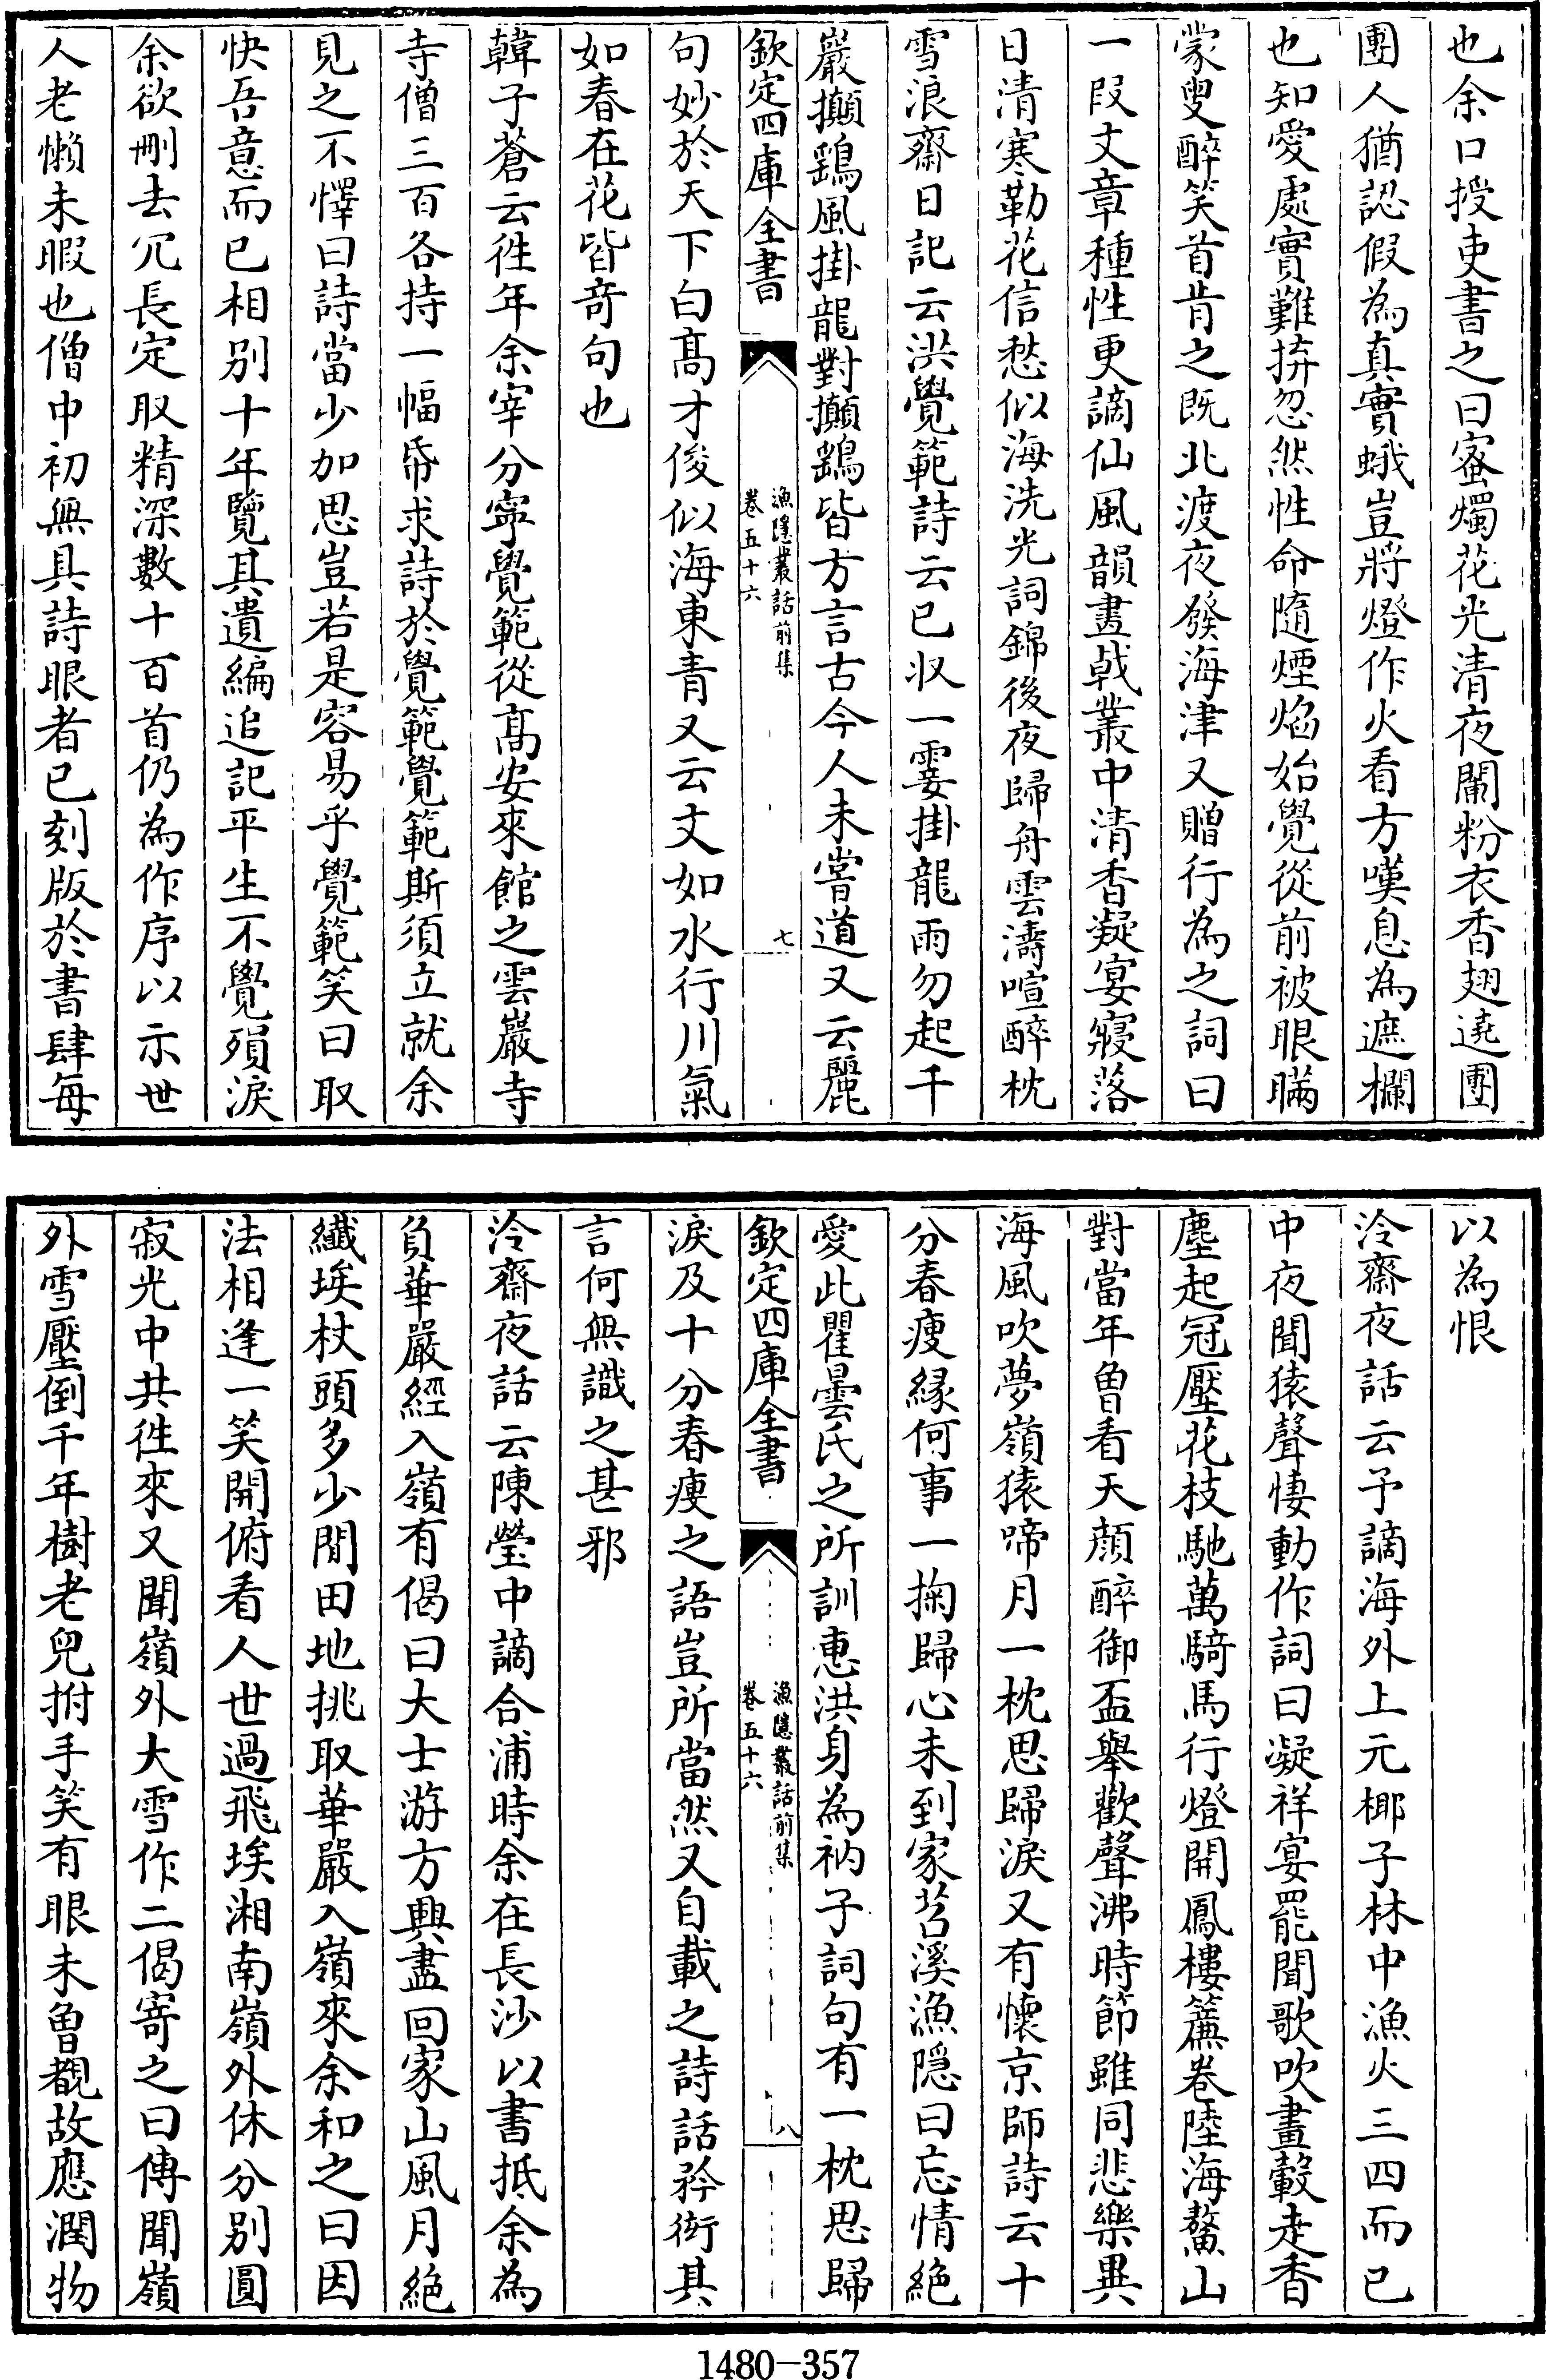 也余口授吏書之曰蜜燭花光清夜闌粉衣香翅遶團
團人猶認假為真實蛾豈將燈作火看方嘆息為遮欄
也知愛處實難拚忽然性命隨煙焰始覺從前被眼瞞
蒙叟醉笑首肯之既北渡夜發海津又贈行為之詞曰
一段文章種性更謫仙風韻畫㦸叢中清香凝宴寢落
日清寒勒花信愁似海洗光詞錦後夜歸舟雲濤喧醉枕
雪浪齋日記云洪覺範詩云已収一霎掛龍雨勿起千
巖攧鷂風掛龍對攧鷂皆方言古今人未嘗道又云麗
欽定四庫全書
漁隱叢話前集
卷五十六
七
句妙於天下白髙才俊似海東青又云文如水行川氣
如春在花皆竒句也
韓子蒼云徃年余宰分寧覺範從髙安來館之雲巖寺
寺僧三百各持一幅帋求詩於覺範覺範斯須立就余
見之不懌曰詩當少加思豈若是容易乎覺範笑曰取
快吾意而已相别十年覽其遺編追記平生不覺殞淚
余欲刪去冗長定取精深數十百首仍為作序以示世
人老懶未暇也僧中初無具詩眼者已刻版於書肆每
以為恨
泠齋夜話云予謫海外上元椰子林中漁火三四而已
中夜聞猿聲悽動作詞曰凝祥宴罷聞歌吹畫轂走香
塵起冠壓花枝馳萬騎馬行燈開鳳樓簾卷陸海鰲山
對當年曾看天顔醉御盃舉歡聲沸時節雖同悲樂異
海風吹夢嶺猿啼月一枕思歸淚又有懷京師詩云十
分春瘦緣何事一掬歸心未到家苕溪漁隱曰忘情絶
愛此瞿曇氏之所訓惠洪身為衲子詞句有一枕思歸
欽定四庫全書
漁隱叢話前集
卷五十六
八
淚及十分春瘦之語豈所當然又自載之詩話矜衒其
言何無識之甚邪
泠齋夜話云陳瑩中謫合浦時余在長沙以書抵余為
負華嚴經入嶺有偈曰大士游方興盡回家山風月絶
纖埃杖頭多少閒田地挑取華嚴入嶺來余和之曰因
法相逢一笑開俯看人世過飛埃湘南嶺外休分别圓
寂光中共徃來又聞嶺外大雪作二偈寄之曰傳聞嶺
外雪壓倒千年樹老兒拊手笑有眼未曾覩故應潤物
1480-357